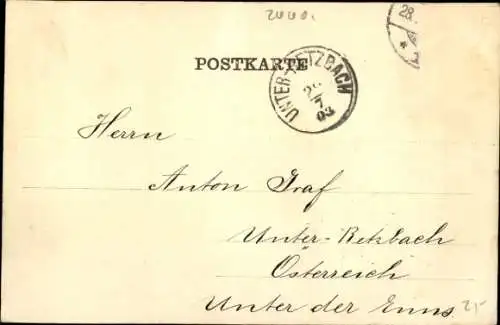 2000.
28.
POSTKARTE
UNTER-RETZBACH
7
03
Herrn
Anton Graf
Unter-Retzbach
Österreich
Unter der Enns.
21-